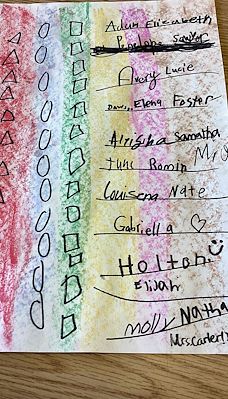 Adam Elizabeth
Sawyer
Avory Lucie
Elena Foster
Samatha
Juni Romin
Mrs
Louisena Nate
Gabriella
Holton
Elijah
Molly Natha
Mrs. Carter